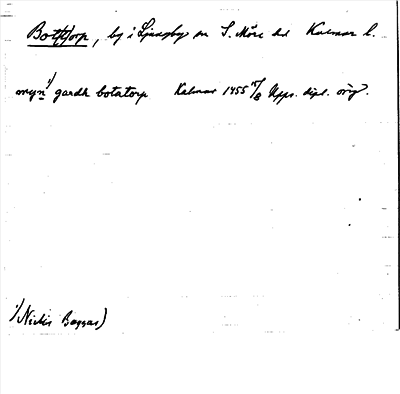 Bottorp, by i Ljungby sn S. Möre hd Kalmar l.
myn 1) gardh botatorp Kalmar 1455 15/8 Upps. dipl. orig.
1) Niclis Baggas)